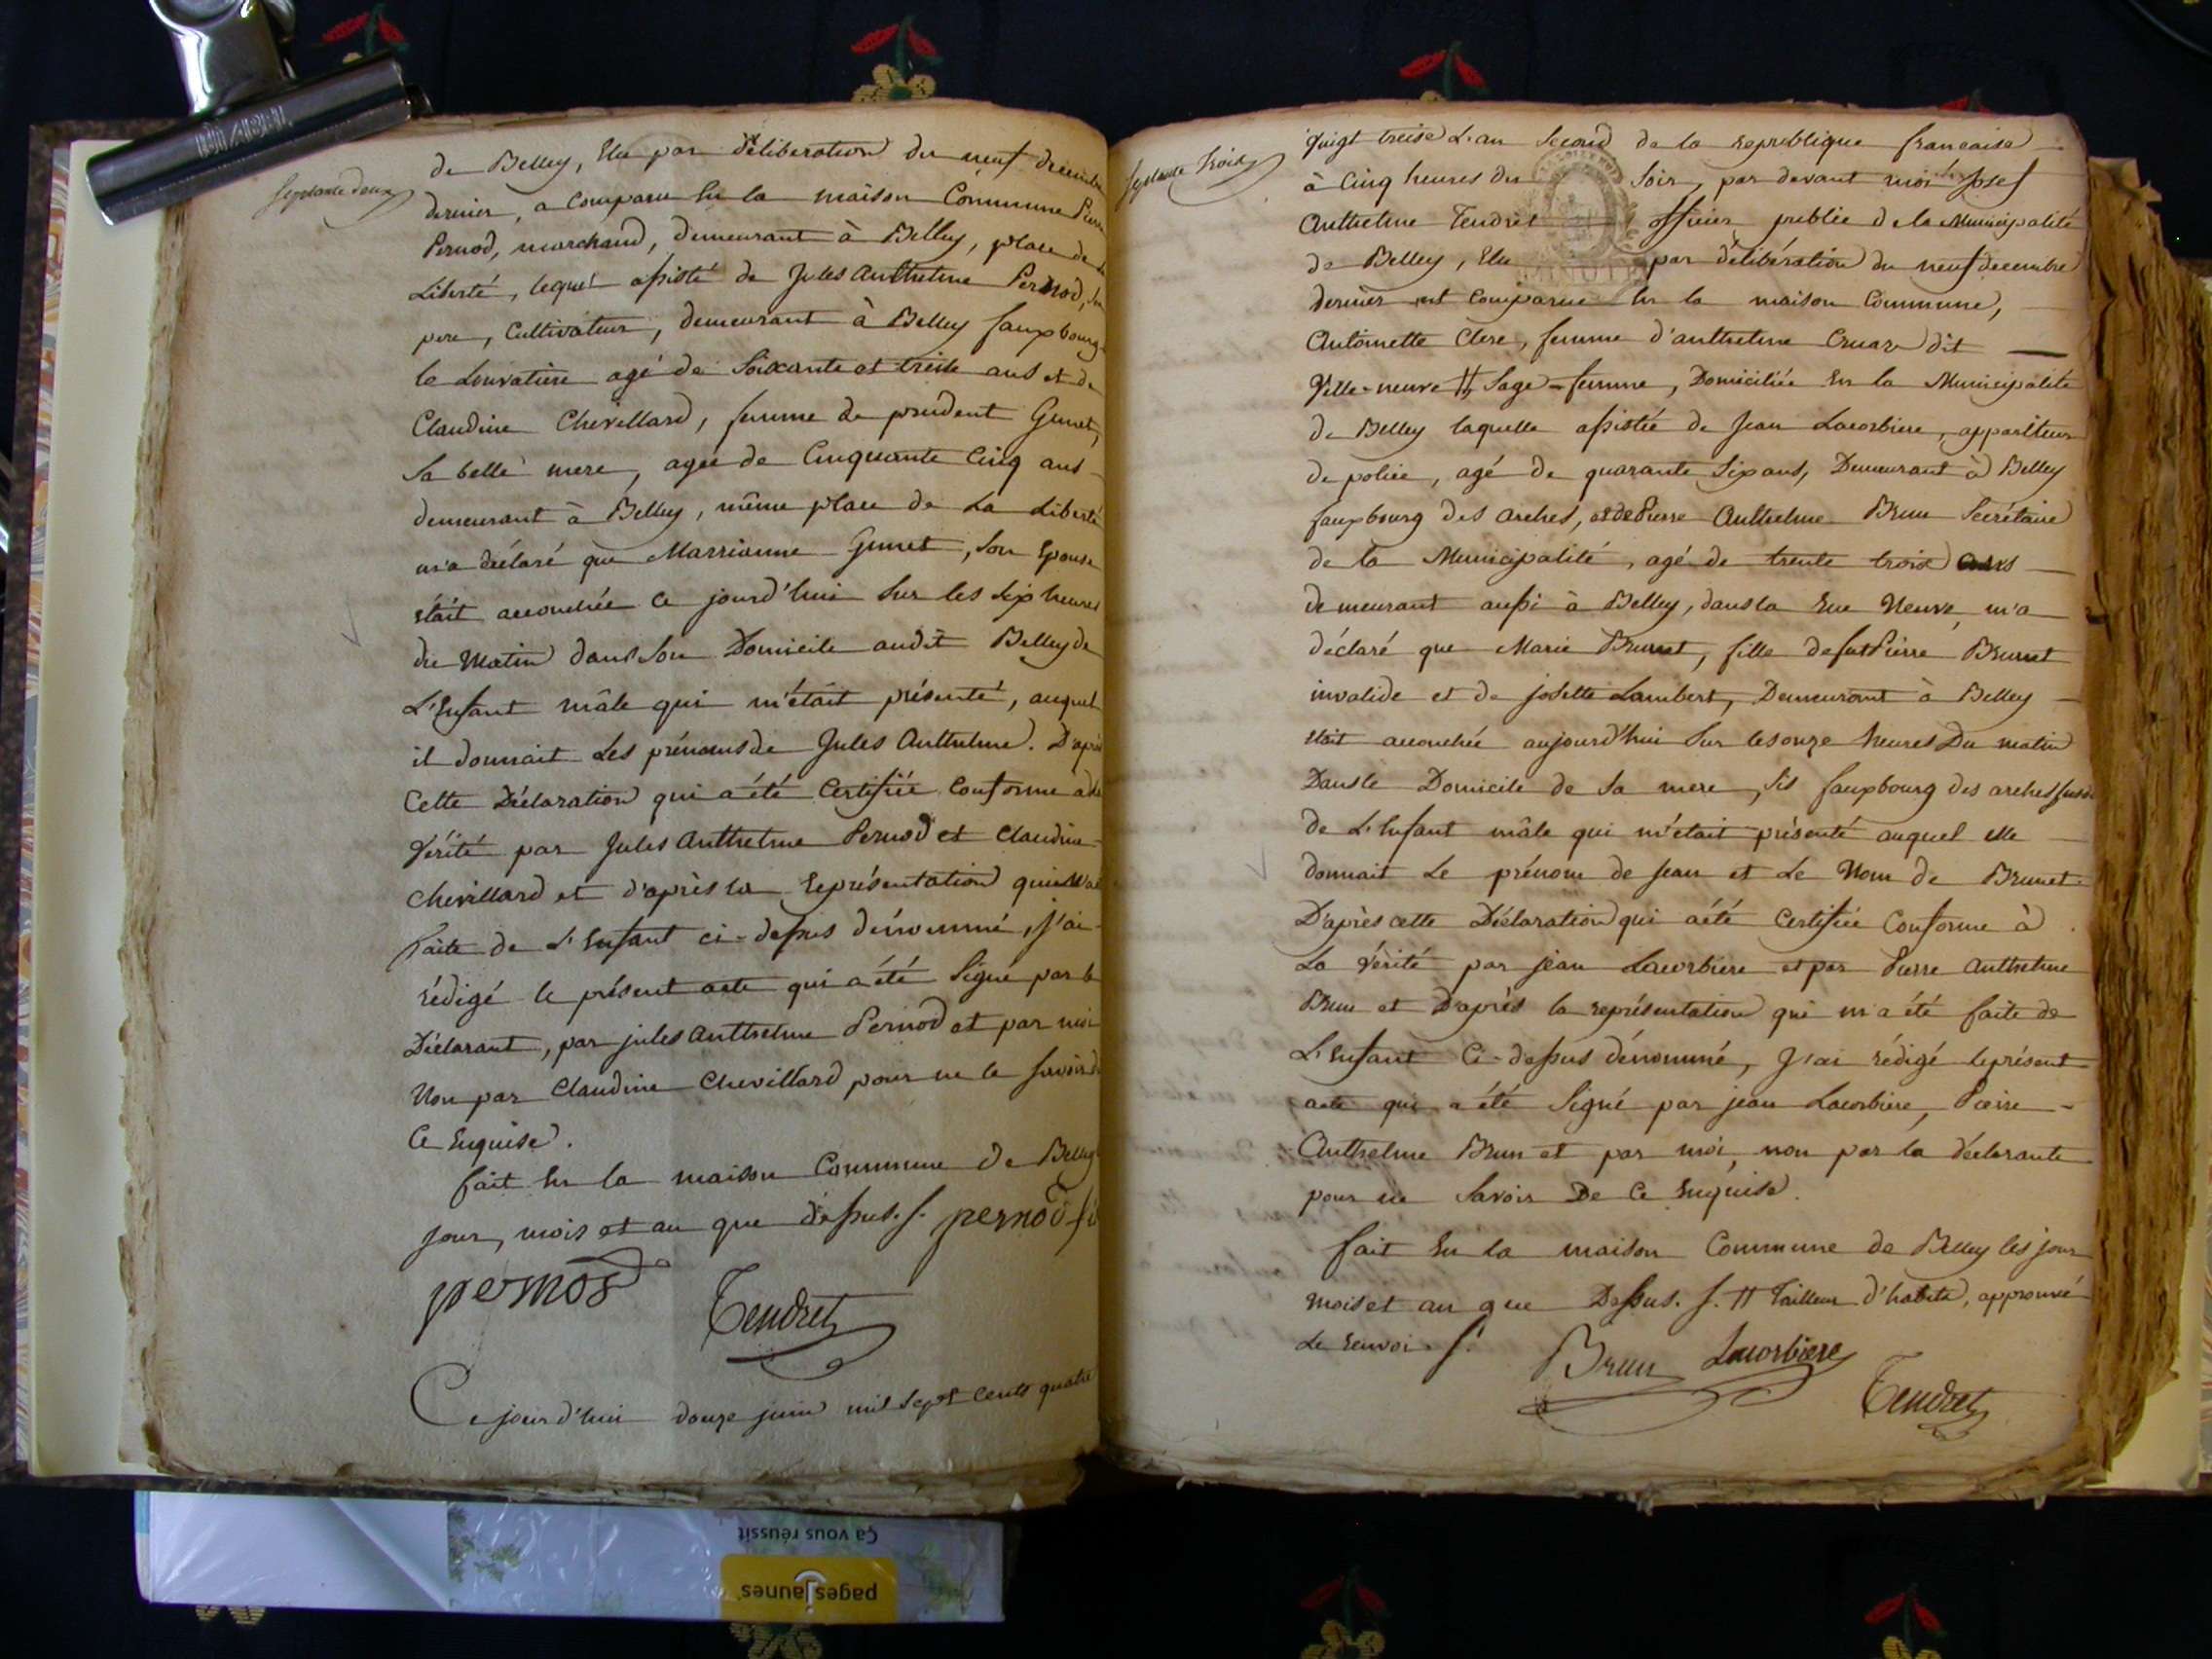 septante deux
de Belley, Elu par déliberation du neuf decembre
dernier, a Comparu En la maison Commune Pierre
Pernod, marchand, demeurant à Belley, place de la
Liberté, lequel assisté de Jules Anthelme Pernod, son
pere, Cultivateur, demeurant à Belley fauxbourg
le Louvatiere agé de Soixante et treise ans et de
Claudine Chevillard, femme de prudent Gunet,
Sa belle mere, agée de Cinquante Cinq ans
demeurant à Belley, même place de La Liberté
m'a déclaré que Marrianne Gunet, Son Epouse
était accouchée ce jourd'hui Sur les Six heures
du Matin dans Son Domicile audit Belley de
L'Enfant mâle qui m'était présenté, auquel
il donnait Les prénoms de Jules Anthelme. D'après
Cette Déclaration qui a été Certifiée Conforme à la
Vérité par Jules Anthelme Pernod et Claudine
Chevillard et d'après la représentation qui m'a été
faite de L'Enfant ci-dessus dénommé, j'ai
rédigé le présent acte qui a été Signé par le
Déclarant, par jules Anthelme Pernod et par moi
Non par Claudine Chevillard pour ne le Savoir de
Ce Enquise.
fait En la maison Commune de Belley
jour, mois et an que dessus. /. pernod fils
pernod Tendret
Ce jour d'hui douze juin mil Sept Cents quatre
septante trois
Vingt treise L'an Second de la république francaise
à Cinq heures du Soir, par devant moi Josef
Anthelme Tendret officier public de la Municipalité
de Belley, Elu par délibération du neuf decembre
dernier est Comparue En la maison Commune,
Antoinette Clere, femme d'anthelme Cruaz dit
Ville-neuve # Sage-femme, Domiciliée En la Municipalité
de Belley laquelle assistée de Jean Lacorbiere, appariteur
de police, agé de quarante Six ans, Demeurant à Belley
fauxbourg des arches, et de Pierre Anthelme Brun Secrétaire
de la Municipalité, agé de trente trois ans
demeurant aussi à Belley, dans la rue Neuve, m'a
déclaré que Marie Brunet, fille de fut Pierre Brunet
invalide et de josette Lambert, Demeurant à Belley
était accouchée aujourd'hui Sur les onze heures Du matin
Dans le Domicile de Sa mere, Sis fauxbourg des arches susdit
de L'Enfant mâle qui m'etait présenté auquel elle
donnait Le prénom de Jean et Le Nom de Brunet.
D'après cette Déclaration qui a été Certifiée Conforme à
La Vérité par jean Lacorbiere et par Pierre Anthelme
Brun et D'après la représentation qui m'a été faite de
L'Enfant Ci-dessus dénommé, J'ai rédigé le présent
acte qui a été Signé par jean Lacorbiere, Pierre
Anthelme Brun et par moi, non par la déclarante
pour ne Savoir De Ce Enquise.
fait En la maison Commune de Belley les jour
mois et an que Dessus. /. # Tailleur d'habits, approuvé
Le renvoi. /.
Brun Lacorbiere
Tendret
MINUTE
MABEL
Ça vous réussit
pagesjaunes